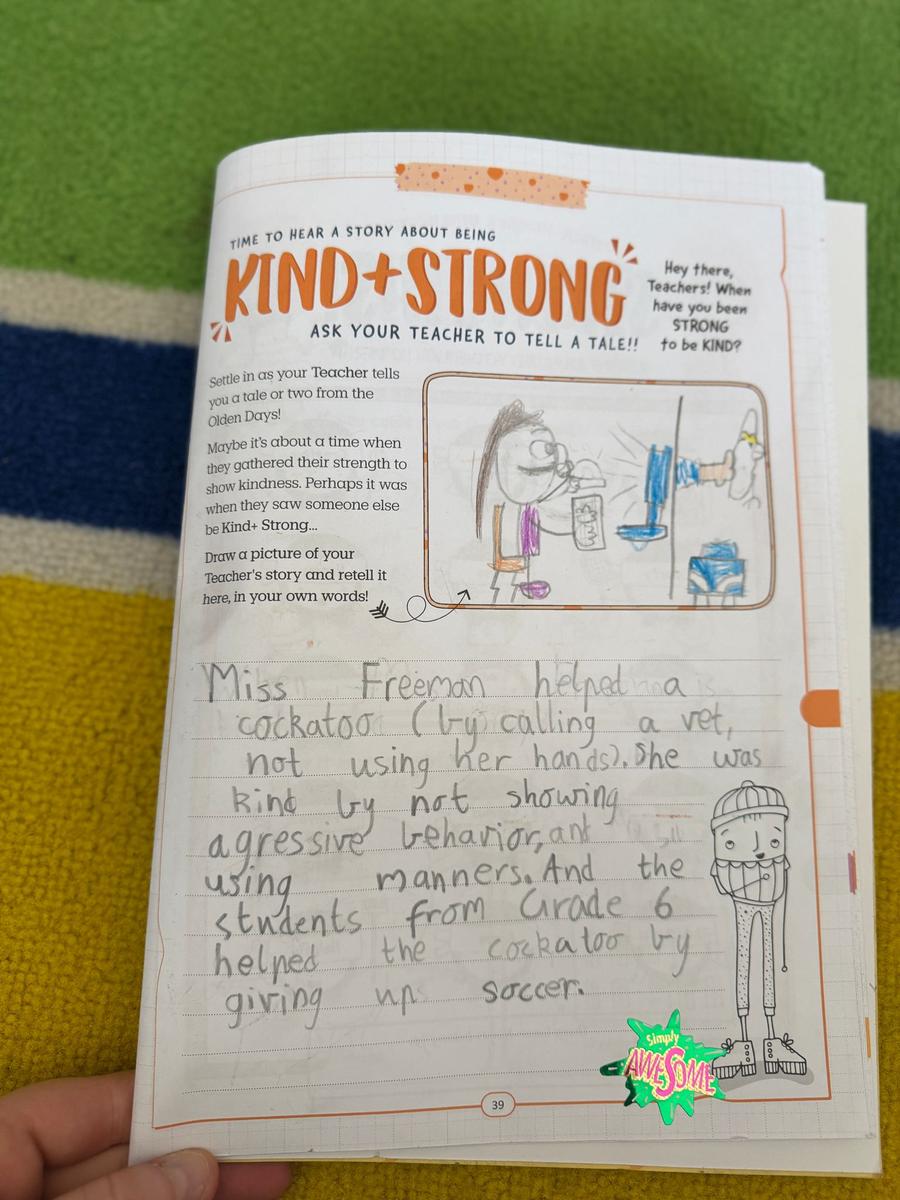 TIME TO HEAR A STORY ABOUT BEING
KIND+STRONG
ASK YOUR TEACHER TO TELL A TALE!!
Hey there,
Teachers! When
have you been
STRONG
to be KIND?
Settle in as your Teacher tells
you a tale or two from the
Olden Days!
Maybe it's about a time when
they gathered their strength to
show kindness. Perhaps it was
when they saw someone else
be Kind+ Strong...
Draw a picture of your
Teacher's story and retell it
here, in your own words!
Miss Freeman helped a
cockatoo (by calling a vet,
not using her hands). She was
kind by not showing
agressive behavior, and
using manners. And the
students from Grade 6
helped the cockatoo by
giving up soccer.
Simply
AWESOME
39